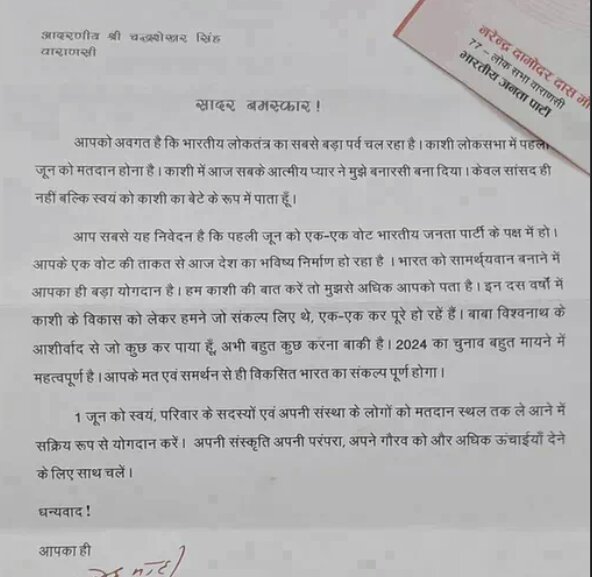 आदरणीय श्री चन्द्रशेखर सिंह
वाराणसी
नरेन्द्र दामोदर दास
77 - लोक सभा वाराणसी
भारतीय जनता पार्टी
सादर नमस्कार !
आपको अवगत है कि भारतीय लोकतंत्र का सबसे बड़ा पर्व चल रहा है। काशी लोकसभा में पहली
जून को मतदान होना है। काशी में आज सबके आत्मीय प्यार ने मुझे बनारसी बना दिया। केवल सांसद ही
नहीं बल्कि स्वयं को काशी का बेटे के रूप में पाता हूँ।
आप सबसे यह निवेदन है कि पहली जून को एक-एक वोट भारतीय जनता पार्टी के पक्ष में हो।
आपके एक वोट की ताकत से आज देश का भविष्य निर्माण हो रहा है । भारत को सामर्थ्यवान बनाने में
आपका ही बड़ा योगदान है। हम काशी की बात करें तो मुझसे अधिक आपको पता है। इन दस वर्षों में
काशी के विकास को लेकर हमने जो संकल्प लिए थे, एक-एक कर पूरे हो रहें हैं। बाबा विश्वनाथ के
आशीर्वाद से जो कुछ कर पाया हूँ, अभी बहुत कुछ करना बाकी है। 2024 का चुनाव बहुत मायने में
महत्वपूर्ण है। आपके मत एवं समर्थन से ही विकसित भारत का संकल्प पूर्ण होगा।
1 जून को स्वयं, परिवार के सदस्यों एवं अपनी संस्था के लोगों को मतदान स्थल तक ले आने में
सक्रिय रूप से योगदान करें। अपनी संस्कृति अपनी परंपरा, अपने गौरव को और अधिक ऊंचाईयाँ देने
के लिए साथ चलें।
धन्यवाद !
आपका ही